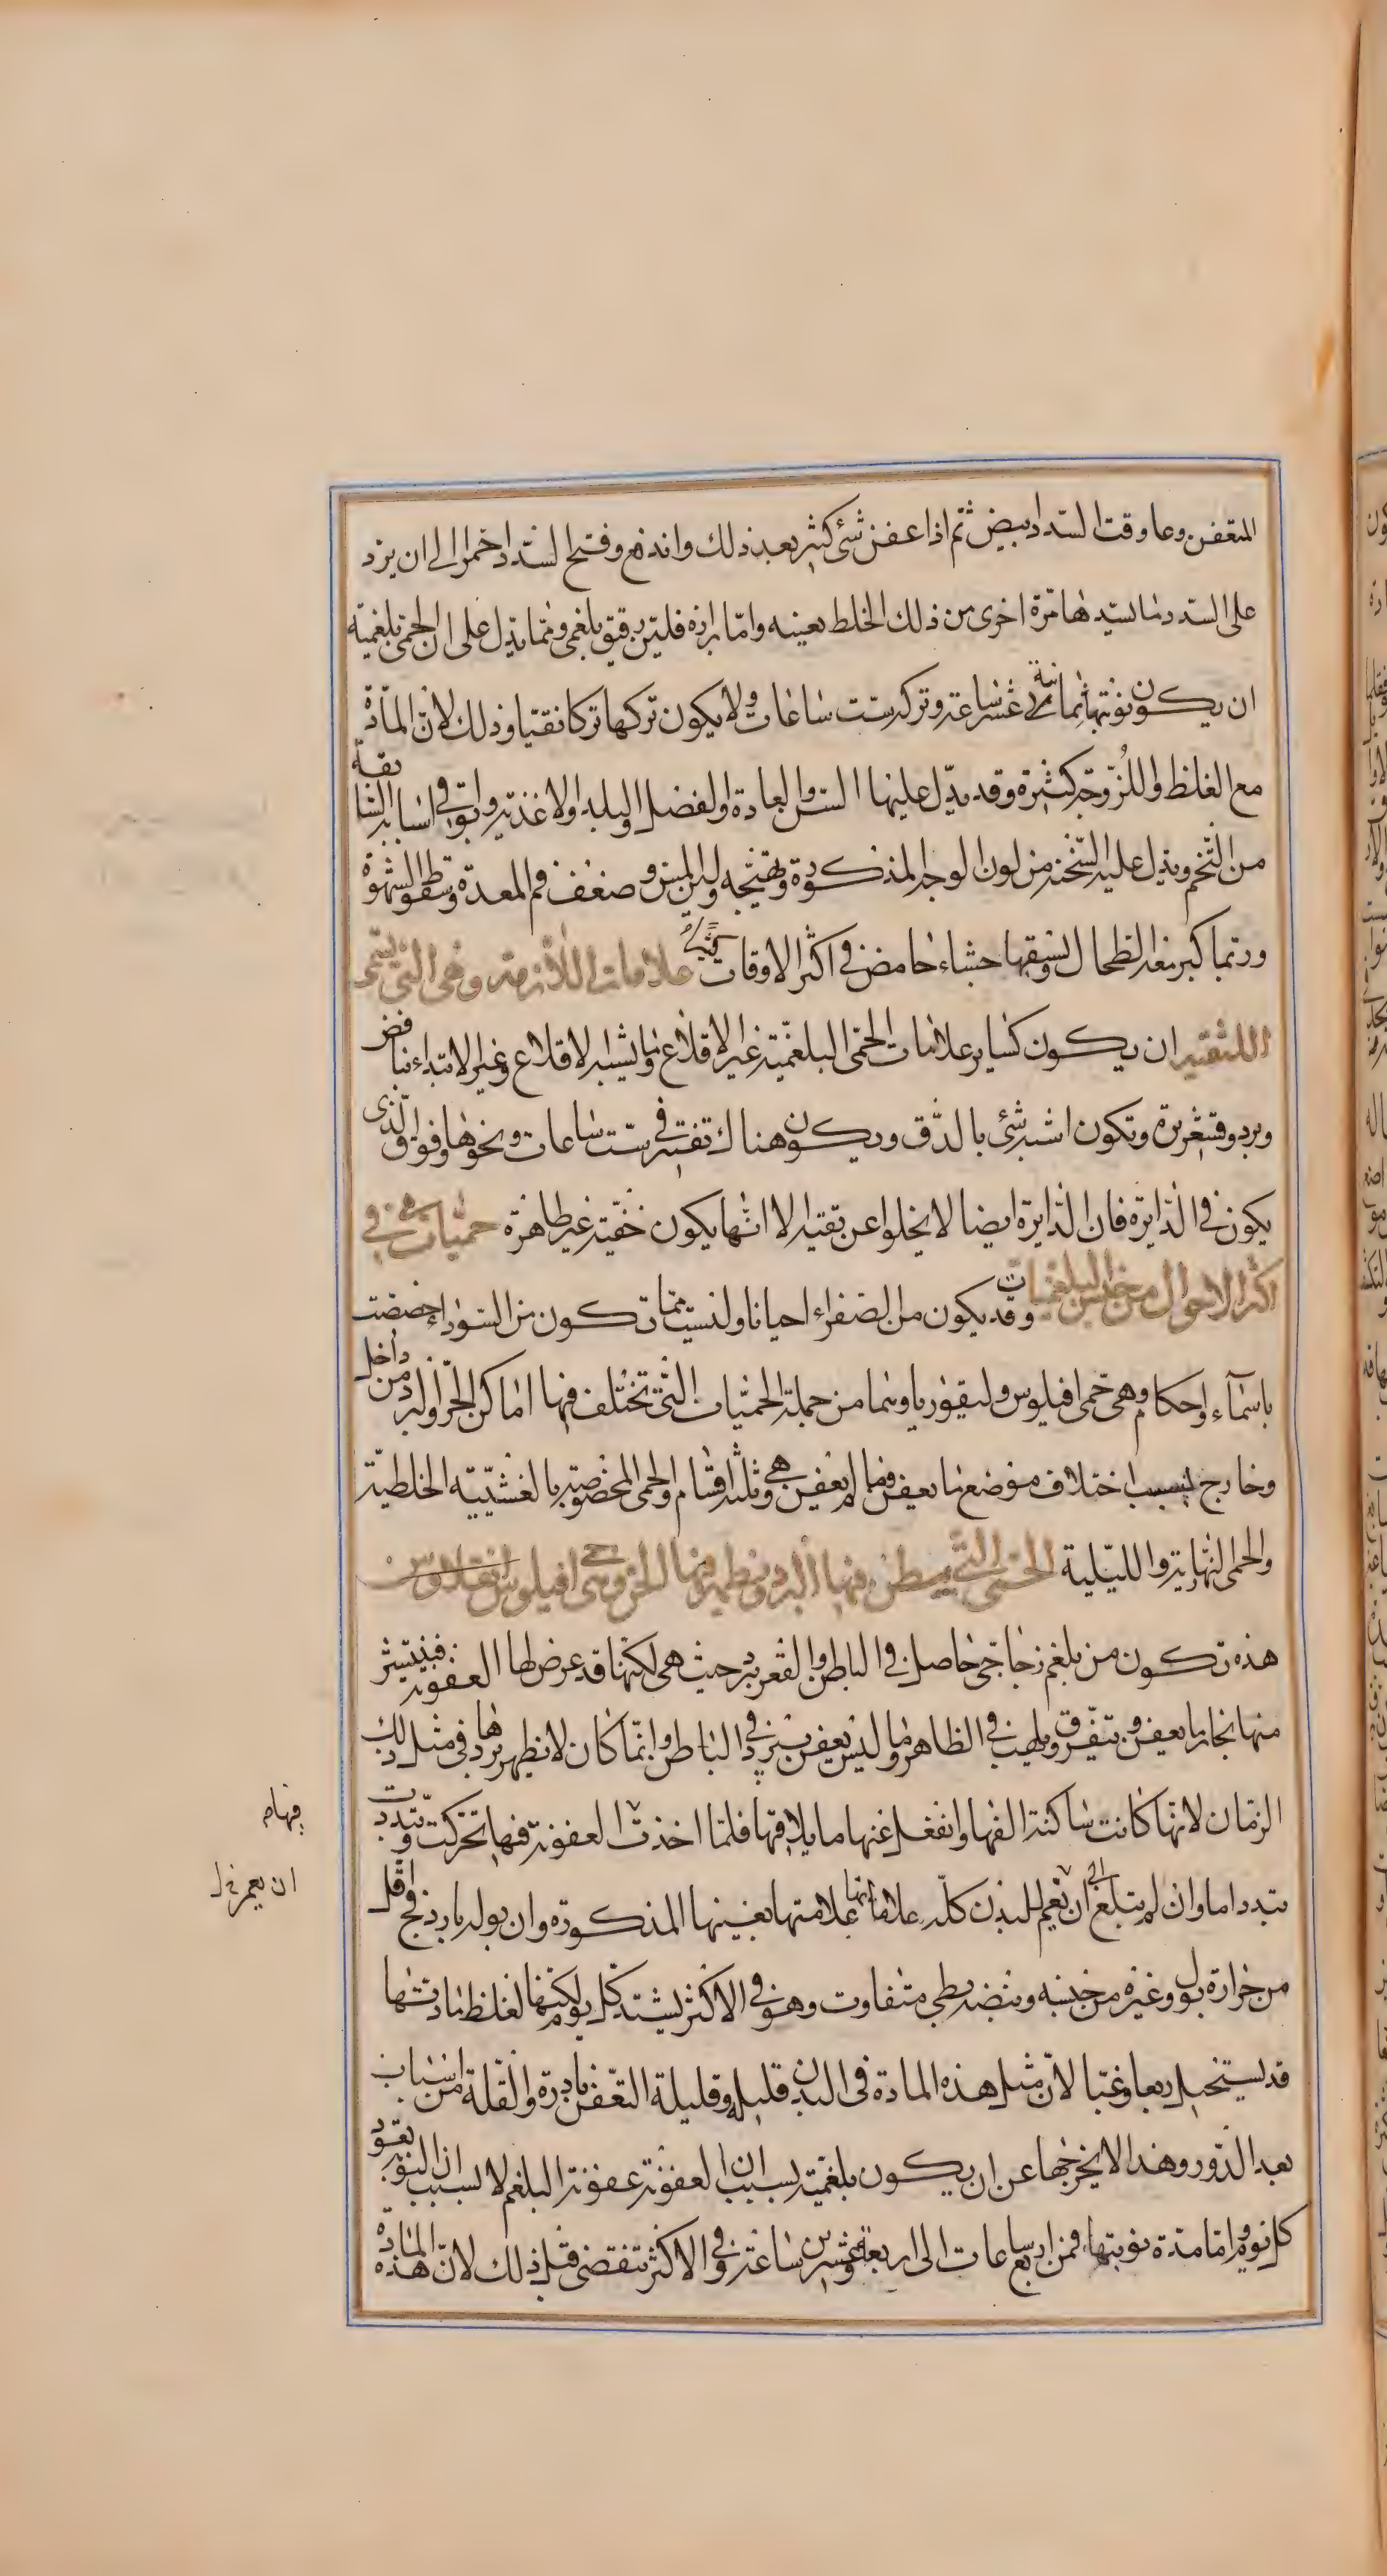 المتعفن وعاوقت السدد ابيض ثم اذا عفن شئ كثير بعد ذلك واندفع وفتح السدد احمر الى ان يرد
على السدد ما يسدها مرة اخرى من ذلك الخلط بعينه واما برازه فلين رقيق بلغمى ومما يدل على ان الحمى بلغمية
ان يكون نوبتها ثمانية عشر ساعة وتركه ست ساعات ولا يكون تركها تركا نقيا وذلك لان المادة
مع الغلظ واللزوجة كثيرة وقد يدل عليها السن والعادة والفصل والبلد والاغذية وتوافى اسباب السابقة
من التخم ويدل عليه السخنة من لون الوجه المذكورة وتهيجه ولين الملمس وضعف فم المعدة وسقوط الشهوة
وربما كبر معه الطحال ويسبقها جشاء حامض فى اكثر الاوقات علامات اللازمة وهى التى يسمى
اللثقه ان يكون كساير علامات الحمى البلغمية غير الاقلاع وما يشبه الاقلاع وغير الابتداء بنافض
وبرد وقشعريرة وتكون اشبه شئ بالدق ويكون هناك تفتير فى ست ساعات ونحوها وفوق الذى
يكون فى الدايرة فان الدايرة ايضا لا يخلوا عن بقية الا انها يكون خفية غير ظاهرة حميات هى فى
اكثر الاحوال من جنس البلغميات وقد يكون من الصفراء احيانا وليست مما تكون من السوداء خصصت
باسماء واحكام وهى حمى افيلوس وليفوريا وهما من جملة الحميات التى تختلف فيها اماكن الحر والبرد من داخل
وخارج بسبب اختلاف موضع ما يعفن وما لم يعفن وهى ثلثة اقسام والحمى المخصوصة بالغشيية الخلطية
والحمى النهارية والليلية الحمى التى يبطن فيها البرد ويظهر فيها الحر وهى حمى افيلوس
هذه تكون من بلغم زجاجى حاصل فى الباطن والقعر يبرد حيث هى لكنها قد عرض لها العفونة فينتشر
منها بخار ما يعفن ويتفرق ويلهب فى الظاهر وما ليس يعفن يبرد فى الباطن وانما كان لا يظهر بردها فى مثل ذلك
الزمان لانها كانت ساكنة الفها وانفعل عنها ما يلاقيها فلما اخذت العفونة فيها تحركت وتبددت
تبددا ما وان لم تبلغ الى ان يعم البدن كله علاماتها علامتها بعينها المذكورة وان بوله بارد فج واقل
من حرارة بول وغيره من جنسه ونبضه بطى متفاوت وهو فى الاكثر يشتد كل يوم لكنها لغلظ مادتها
قد يستحيل ربعا وغبا لان مثل هذه المادة فى البدن قليلة وقليلة التعفن نادرة والقلة من اسباب
بعد الدور وهذا لا يخرجها عن ان يكون بلغمية بسبب ان العفونة عفونة البلغم لا بسبب ان النوبة يعود
كل يوم واما مدة نوبتها فمن اربع ساعات الى اربعة وعشرين ساعة وفى الاكثر تنقضى قبل ذلك لان هذه المادة
فيها
ان يعم